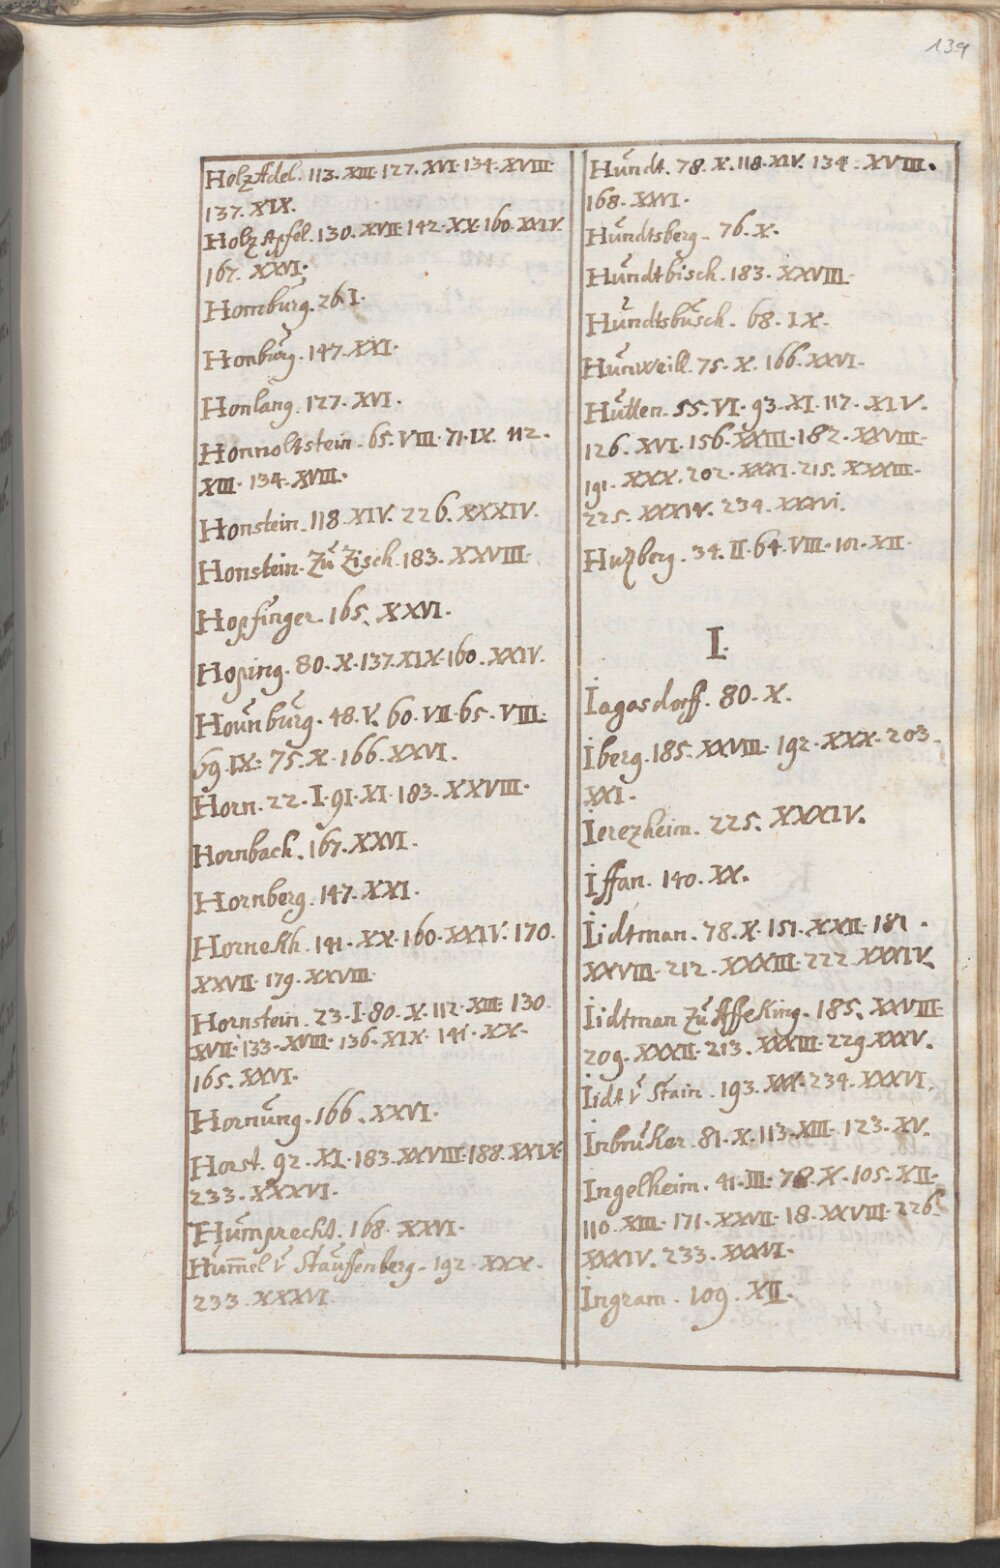 139
HolzAdel. 113. XIII. 127. XVI. 134. XVIII.
137. XIX.
Holz Apfel. 130. XVII. 142. XX. 160. XXIV.
167. XXVI.
Homburg. 26. I.
Honburg. 147. XXI.
Honlang. 127. XVI.
Honnoltstein. 65. VIII. 71. IX. 112.
XIII. 134. XVIII.
Honstein. 118. XIV. 226. XXXIV.
Honstein. Zu Zisch. 183. XXVIII.
Hopfinger. 165. XXVI.
Hoping. 80. X. 137. XIX. 160. XXIV.
Hounburg. 48. V. 60. VII. 65. VIII.
69. IX. 75. X. 166. XXVI.
Horn. 22. I. 91. XI. 183. XXVIII.
Hornbach. 167. XXVI.
Hornberg. 147. XXI.
Hornekh. 141. XX. 160. XXIV. 170.
XXVII. 179. XXVIII.
Hornstein. 23. I. 80. X. 112. XIII. 130.
XVII. 133. XVIII. 136. XIX. 141. XX.
165. XXVI.
Hornung. 166. XXVI.
Horst. 92. XI. 183. XXVIII. 188. XXIX.
233. XXXVI.
Humprecht. 168. XXVI.
Hum̄el v̆ Stauffenberg. 192. XXX.
233. XXXVI
Hundt. 78. X. 118. XIV. 134. XVIII.
168. XXVI.
Hundtsberg. 76. X.
Hundtbisch. 183. XXVIII.
Hundtsbusch. 68. IX.
Hunweill. 75. X. 166. XXVI.
Hutten. 55. VI. 93. XI. 117. XIV.
126. XVI. 156. XXIII. 182. XXVIII.
191. XXX. 202. XXXI. 215. XXXIII.
225. XXXIV. 234. XXXVI.
Huzberg. 34. II. 64. VIII. 101. XII.
I.
Iagasdorff. 80. X.
Iberg. 185. XXVIII. 192. XXX. 203.
XXI.
Ierezheim. 225. XXXIV.
Iffan. 140. XX.
Iidtman. 78. X. 151. XXII. 181.
XXVIII. 212. XXXIII. 222. XXXIV.
Iidtman Zu Affeking. 185. XXVIII.
209. XXXII. 213. XXXIII. 229 XXXV.
Iidt v̆ Stain. 193. XXX. 234. XXXVI.
Inbruker. 81. X. 113. XIII. 123. XV.
Ingelheim. 41. III. 78. X. 105. XII.
110. XIII. 171. XXVII. 18. XXVIII. 226.
XXXIV. 233. XXXVI.
Ingram. 109. XII.